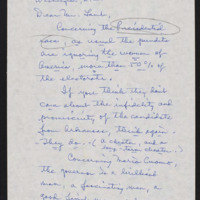 Dear Mr. Lamb,
Concerning the Presidential
race, as usual the pundits
are ignoring the women of
America, more than 50% of
the electorate.
If you think they don't
care about the infidelity and
promiscuity of the candidate
from Arkansas, think again.
They do. (A cheater, and a
Concerning Mario Cuomo,
the governor is a brilliant
man, a fascinating man, a